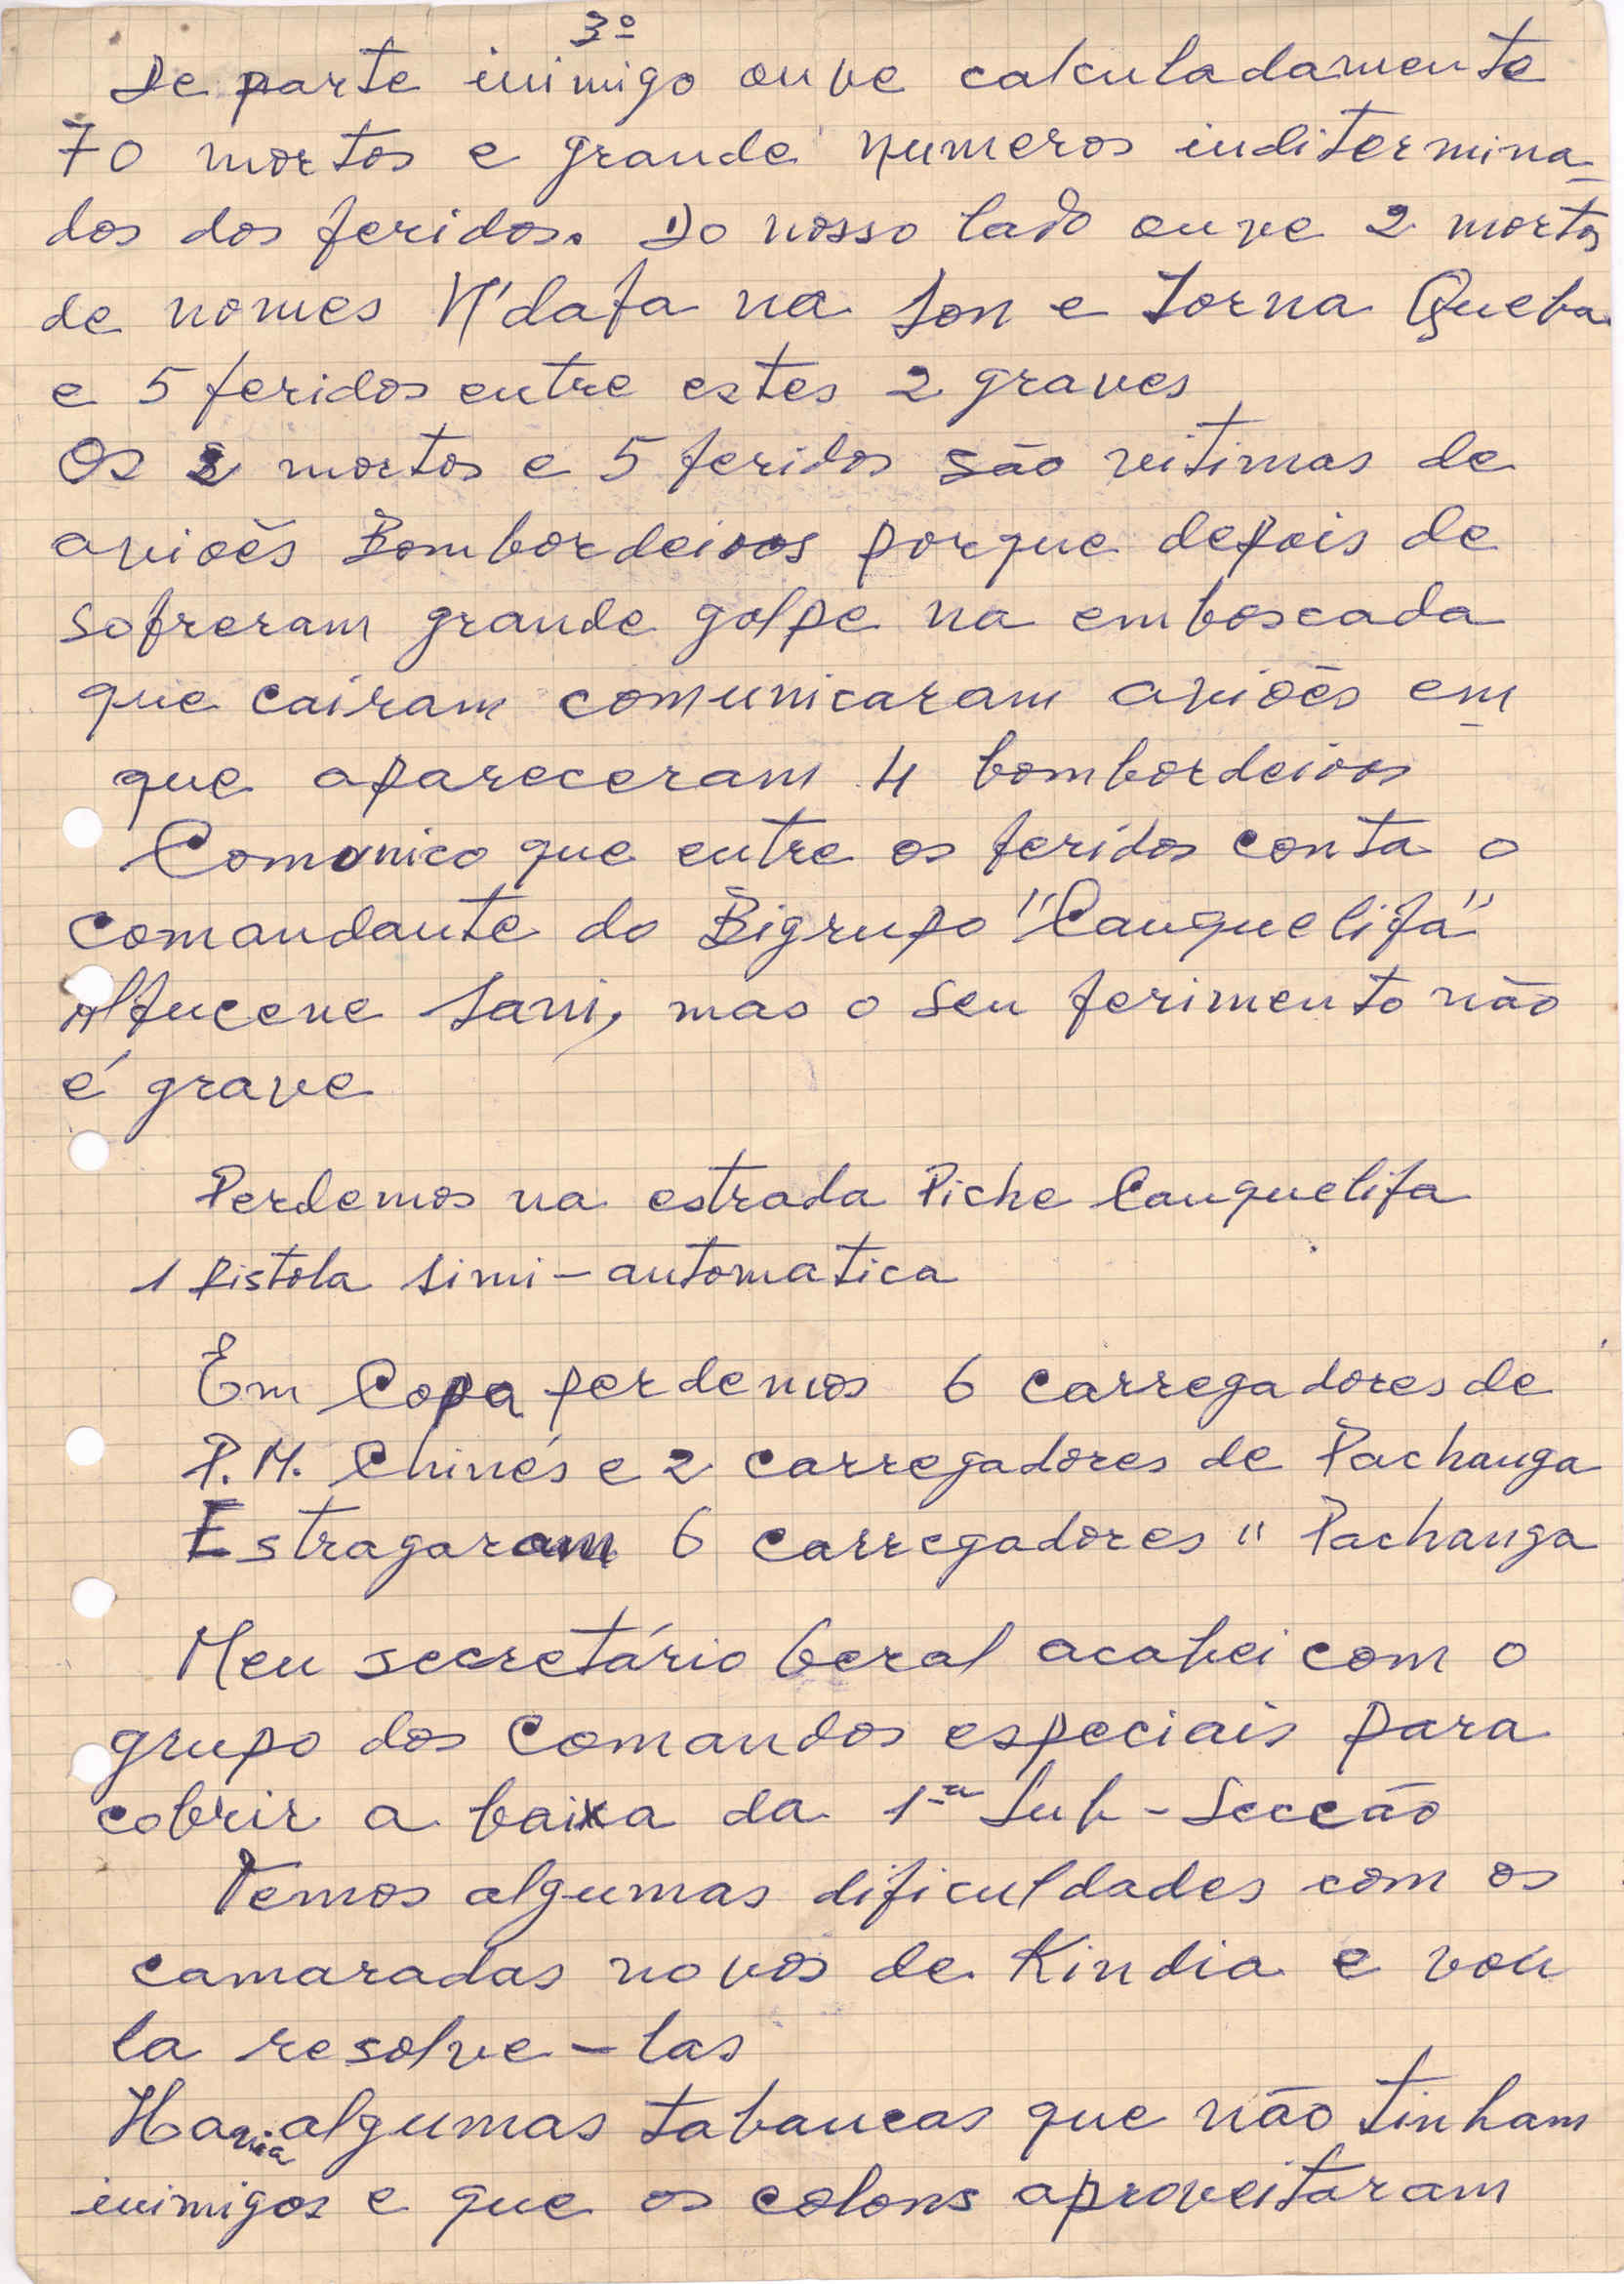 3º
De parte inimigo ouve calculadamente
70 mortos e grande numeros inditermina-
dos dos feridos. Do nosso lado ouve 2 mortos
de nomes N'dafa na Son e Torna Queba
e 5 feridos entre estes 2 graves
Os 2 mortos e 5 feridos são vitimas de
aviões Bombordeiros porque depois de
sofreram grande golpe na emboscada
que cairam comunicaram aviões em
que apareceram 4 bombordeiros
Comunico que entre os feridos conta o
comandante do Bigrupo "Canquelifa"
Alfucene Sani, mas o seu ferimento não
é grave
Perdemos na estrada Piche Canquelifa
1 Pistola simi-automatica
Em Copa perdemos 6 carregadores de
P.M. Chinés e 2 carregadores de Pachanga
Estragaram 6 carregadores " Pachanga
Meu secretário Geral acabei com o
grupo dos Comandos especiais para
cobrir a baixa da 1ª Sub-Secção
Temos algumas dificuldades com os
camaradas novos de Kindia e vou
la resolve-las
Havia algumas tabancas que não tinham
inimigos e que os colons aproveitaram